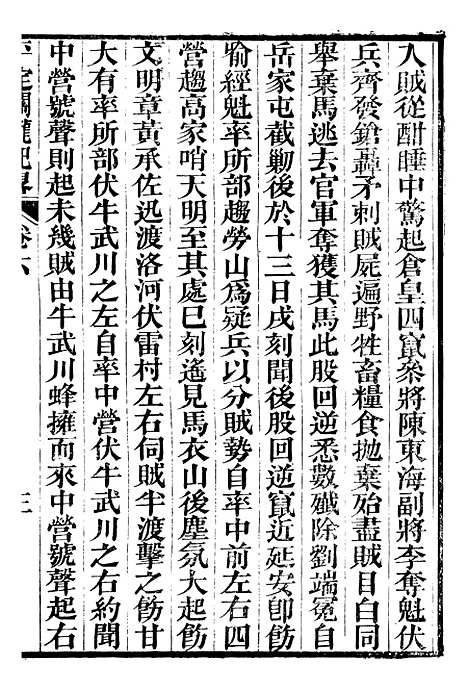 入賊從酣睡中驚起倉皇四竄叅將陳東海副將李奪魁伏
兵齊發鎗轟矛刺賊屍遍野牲畜糧食拋棄殆盡賊目白同
舉棄馬逃去官軍奪獲其馬此股回逆悉數殲除劉端冕自
岳家屯截勦後於十三日戌刻聞後股回逆竄近延安卽飭
喻經魁率所部趨勞山爲疑兵以分賊勢自率中前左右四
營趨高家哨天明至其處巳刻遙見馬衣山後塵氛大起飭
文明章黃承佐迅渡洛河伏雷村左右伺賊半渡擊之飭甘
大有率所部伏牛武川之左自率中營伏牛武川之右約聞
中營號聲則起未幾賊由牛武川蜂擁而來中營號聲起右
平定關隴紀畧
卷六
三